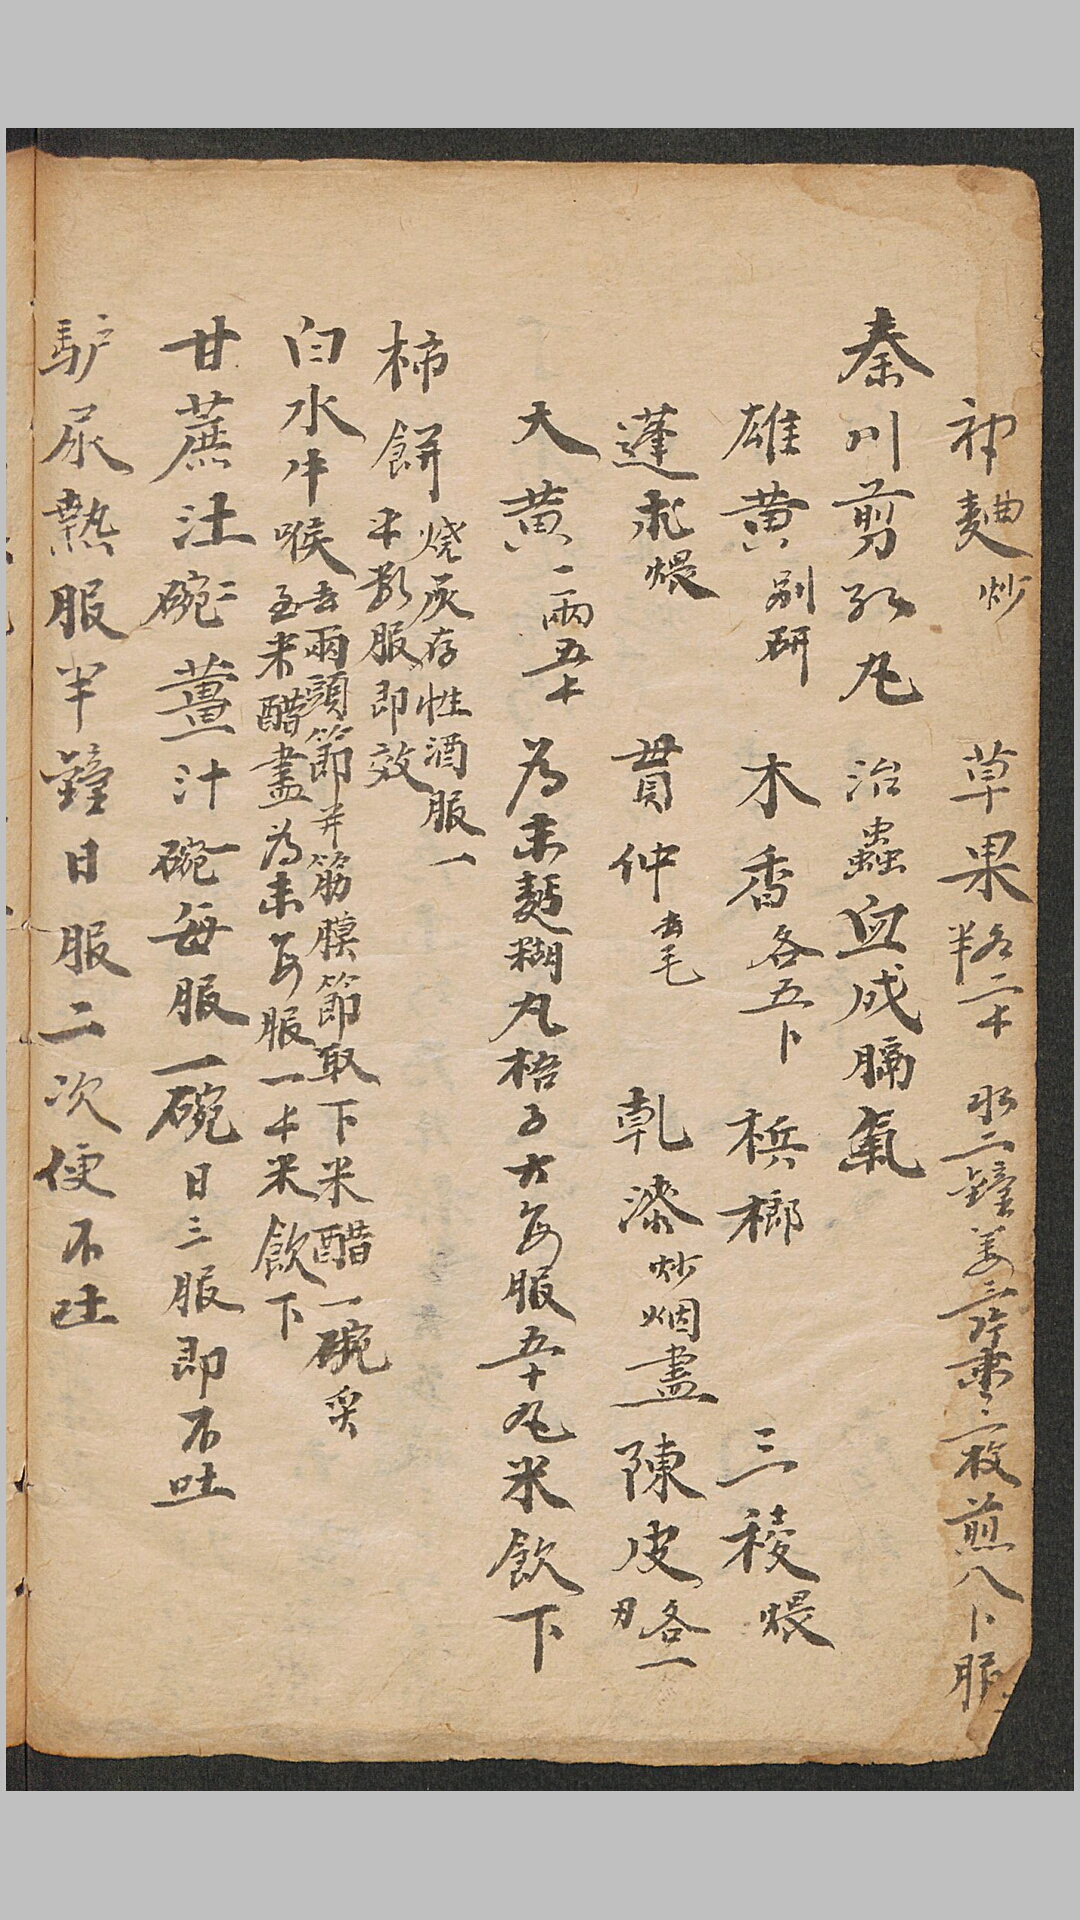 神麯炒 草果各二卞半 水二鐘姜三片棗二枚煎八卜服
秦川剪红丸 治蟲血成膈氣
雄黄别研 木香各五卜 梹榔 三稜煨
蓬朮煨 貫仲去毛 乾漆炒烟盡 陳皮各一刃
大黄一兩五卞 為末麪糊丸梧子大每服五十丸米飲下
柿餅烧灰存性酒服一卞數服即效
白水牛喉去兩頭節并筋膜節取下米醋一碗炙至米醋盡為末每服一卞米飲下
甘蔗汁二碗薑汁一碗每服一碗日三服即不吐
馿尿熱服半鐘日服二次便不吐